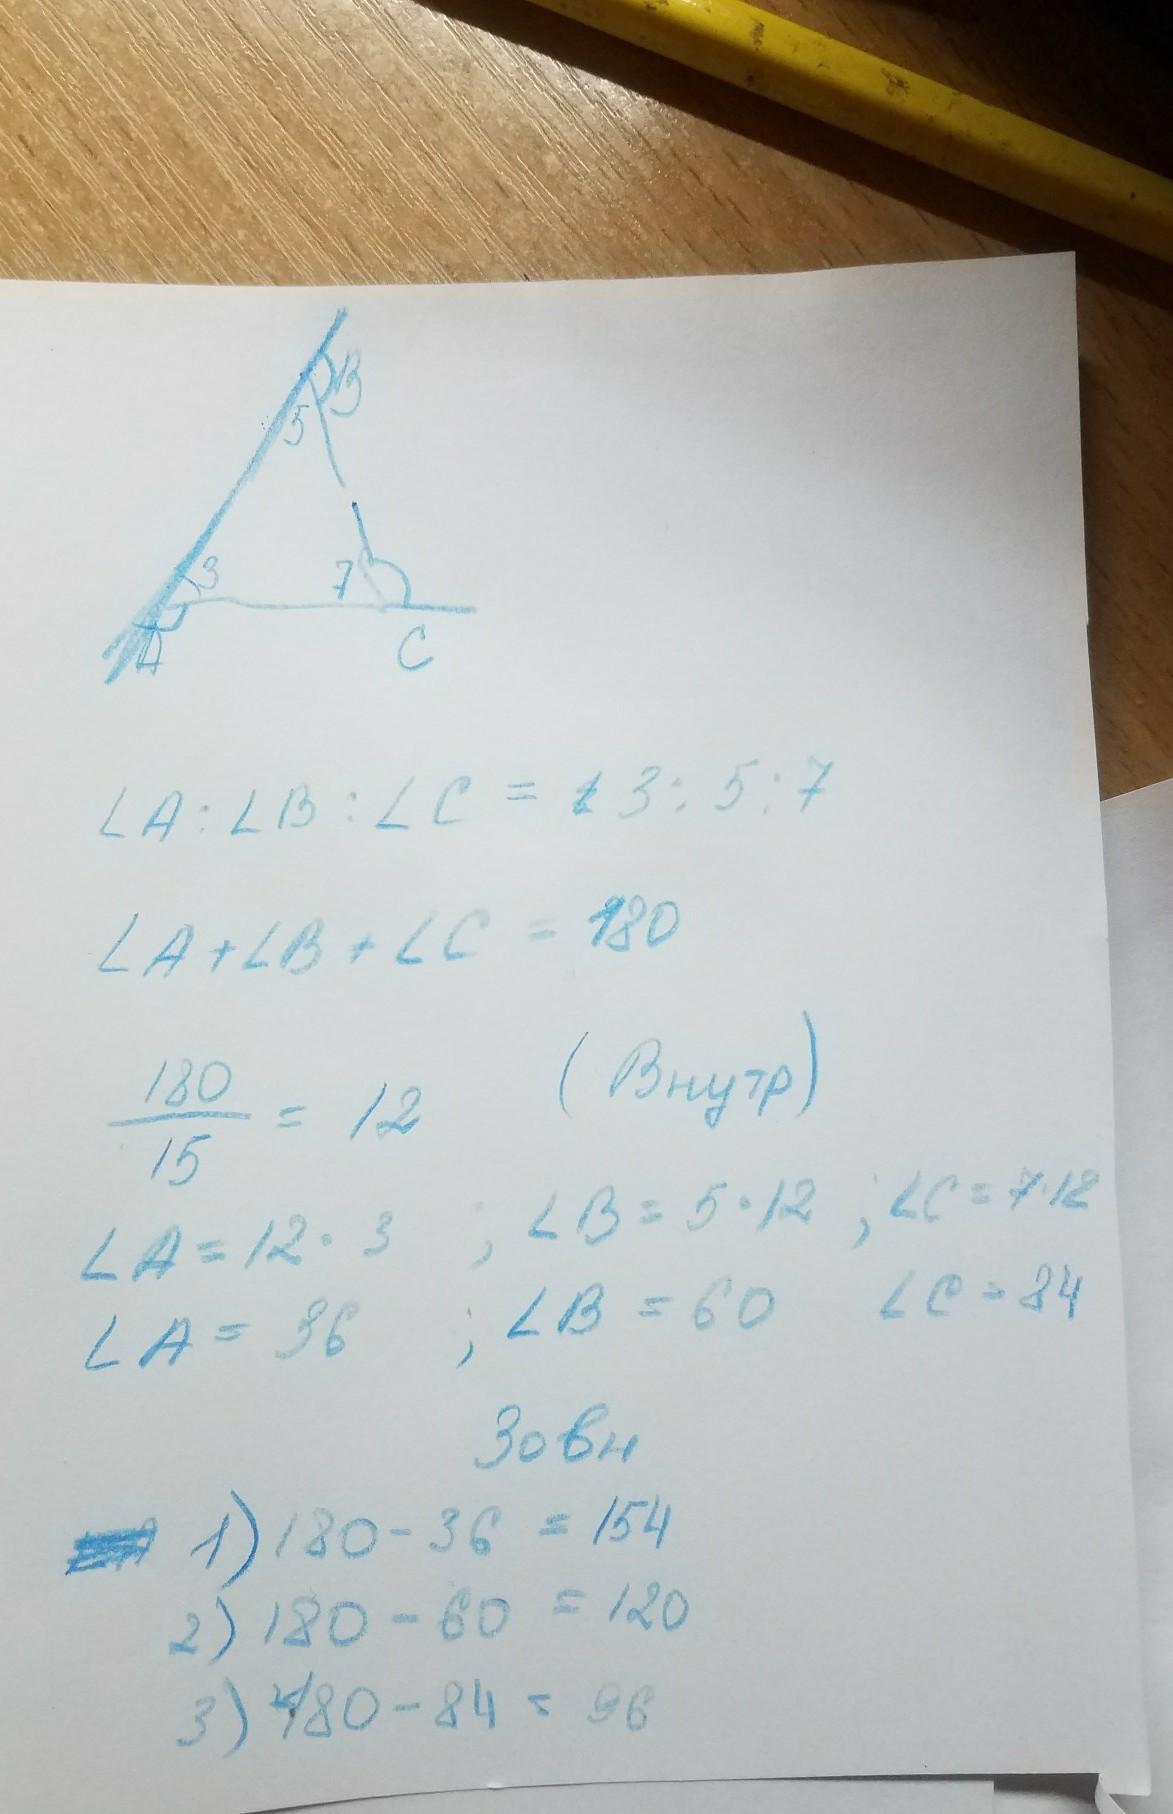 B
5
3
7
A
C
∠A : ∠B : ∠C = 3 : 5 : 7
∠A + ∠B + ∠C = 180
180/15 = 12 (Внутр)
∠A = 12 · 3 ; ∠B = 5 · 12 ; ∠C = 7 · 12
∠A = 36 ; ∠B = 60 ∠C = 84
Зовн
1) 180 - 36 = 154
2) 180 - 60 = 120
3) 180 - 84 = 96